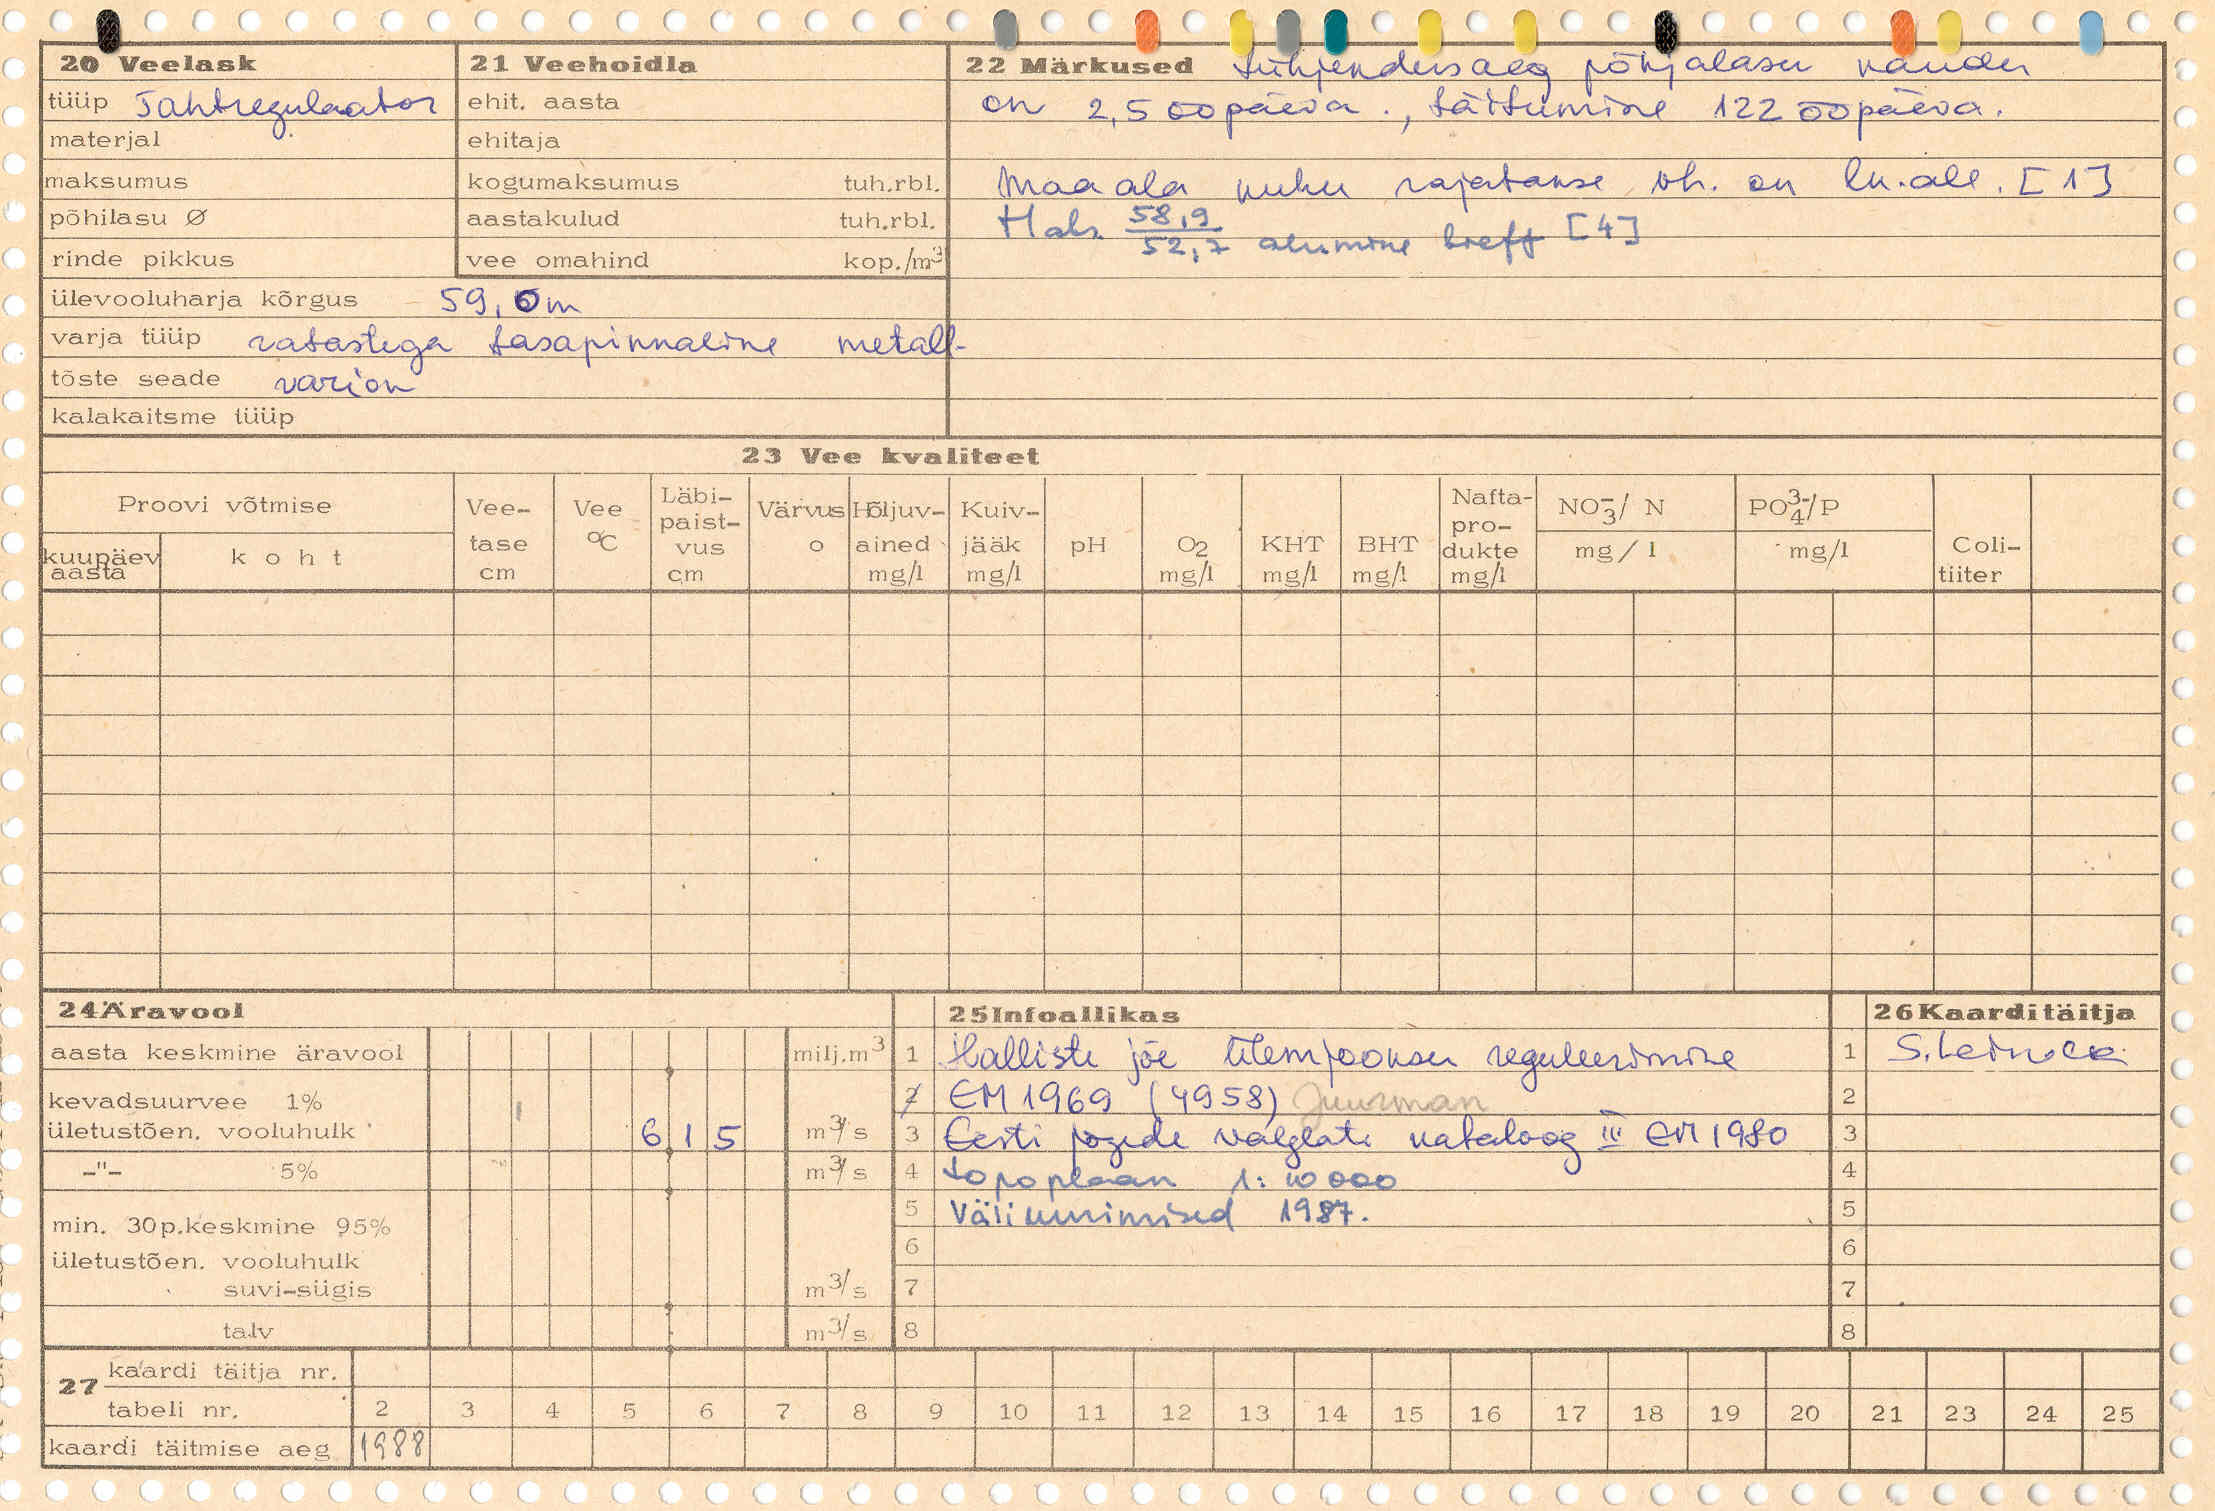 20 Veelask
tüüp Tahtregulaator
materjal
maksumus
põhilasu Ø
rinde pikkus
ülevooluharja kõrgus 59,0m
varja tüüp ratastega tasapinnaline metall-
tõste seade varion
kalakaitsme tüüp
21 Veehoidla
ehit. aasta
ehitaja
kogumaksumus tuh.rbl.
aastakulud tuh.rbl.
vee omahind kop./m³
22 Märkused tühjendusaeg põhjalasu kaudu
on 2,5 ööpäeva., täitumine 122 ööpäeva.
Maa ala kuhu rajatakse vh. on lk.all. [1]
Mahs 58,9/52,7 alumine bieff [4]
23 Vee kvaliteet
Proovi võtmise
kuupäev aasta
koht
Vee-tase cm
Vee °C
Läbi-paist-vus cm
Värvus o
Hõljuv-ained mg/l
Kuiv-jääk mg/l
pH
O2 mg/l
KHT mg/l
BHT mg/l
Nafta-pro-dukte mg/l
NO3⁻/ N mg/l
PO4³⁻/P mg/l
Coli-tiiter
24 Äravool
aasta keskmine äravool milj.m³
kevadsuurvee 1%
ületustõen. vooluhulk 61 5 m³/s
-"- 5% m³/s
min. 30p.keskmine 95%
ületustõen. vooluhulk
suvi-sügis m³/s
talv m³/s
25 Infoallikas
1 Halliste jõe ülemjooksu reguleerimine
2 EM 1969 (4958) Juurman
3 Eesti jõgede valglate kataloog III EM 1980
4 topoplaan 1:10 000
5 Väliuurimised 1987.
6
7
8
26 Kaarditäitja
1 S. Leinock
2
3
4
5
6
7
8
27 kaardi täitja nr.
tabeli nr. 2 3 4 5 6 7 8 9 10 11 12 13 14 15 16 17 18 19 20 21 23 24 25
kaardi täitmise aeg 1988